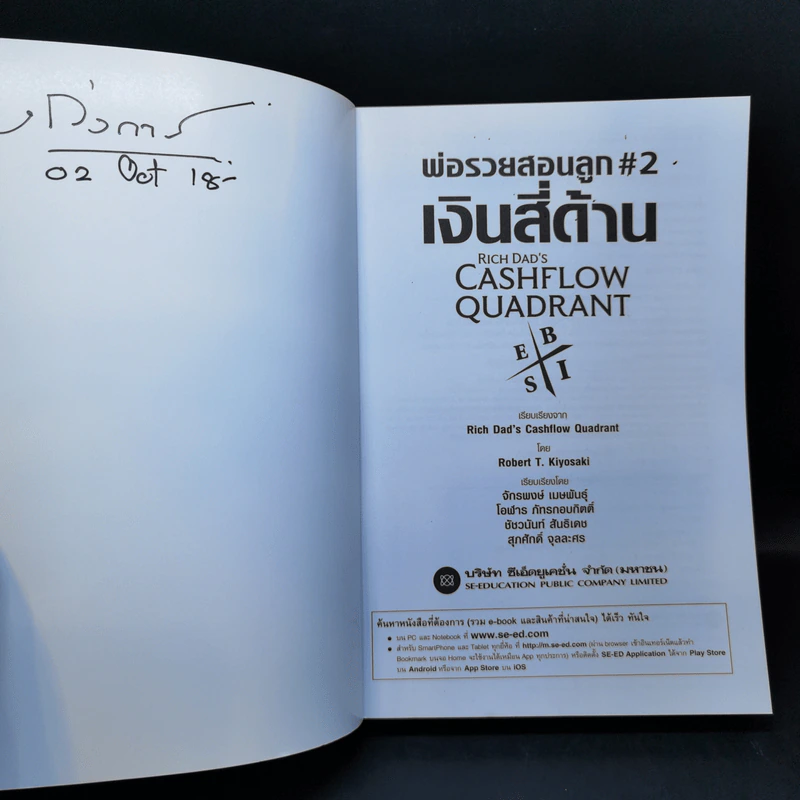 02 Oct 18-
พ่อรวยสอนลูก #2
เงินสี่ด้าน
RICH DAD'S
CASHFLOW
QUADRANT
E B
S I
เรียบเรียงจาก
Rich Dad's Cashflow Quadrant
โดย
Robert T. Kiyosaki
เรียบเรียงโดย
จักรพงษ์ เมษพันธุ์
โอฬาร ภัทรกอบกิตติ์
ชัชวนันท์ สันธิเดช
สุภศักดิ์ จุลละศร
บริษัท ซีเอ็ดยูเคชั่น จำกัด (มหาชน)
SE-EDUCATION PUBLIC COMPANY LIMITED
ค้นหาหนังสือที่ต้องการ (รวม e-book และสินค้าที่น่าสนใจ) ได้เร็ว ทันใจ
● บน PC และ Notebook ที่ www.se-ed.com
● สำหรับ SmartPhone และ Tablet ทุกยี่ห้อ ที่ http://m.se-ed.com (ผ่าน browser เข้าอินเทอร์เน็ตแล้วทำ
Bookmark บนจอ Home จะใช้งานได้เหมือน App ทุกประการ) หรือติดตั้ง SE-ED Application ได้จาก Play Store
บน Android หรือจาก App Store บน iOS